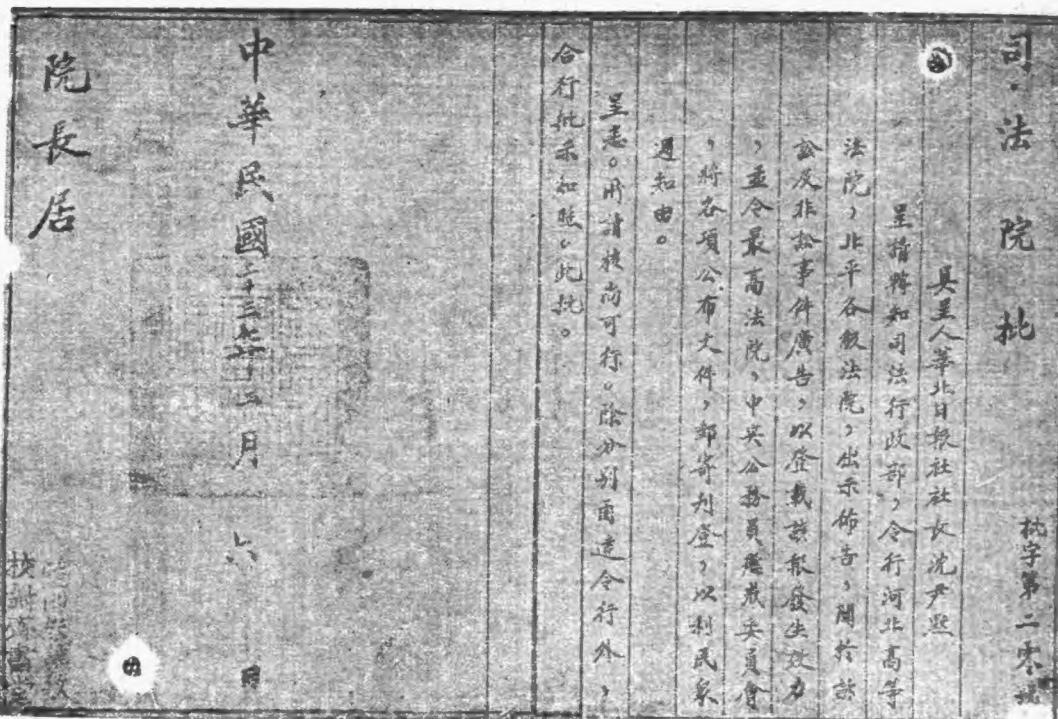 司法院批
批字第二零 號
具呈人華北日報社社長沈尹默
呈請轉知司法行政部，令行河北高等
法院，北平各級法院，出示佈告，關於訴
訟及非訟事件廣告，以登載該報發生效力
，並令最高法院，中央公務員懲戒委員會
，將各項公布文件，郵寄刊登，以利民眾
週知由。
呈悉。所請核尚可行。除分別函達令行外，
合行批示知照。此批。
中華民國二十三年十二月六日
院長居